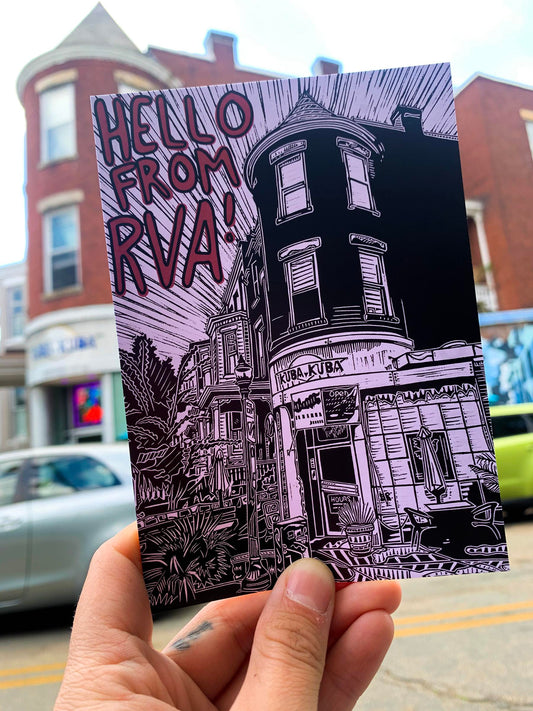 HELLO
FROM
RVA!
KUBA KUBA
KUBA KUBA
OPEN
HOURS